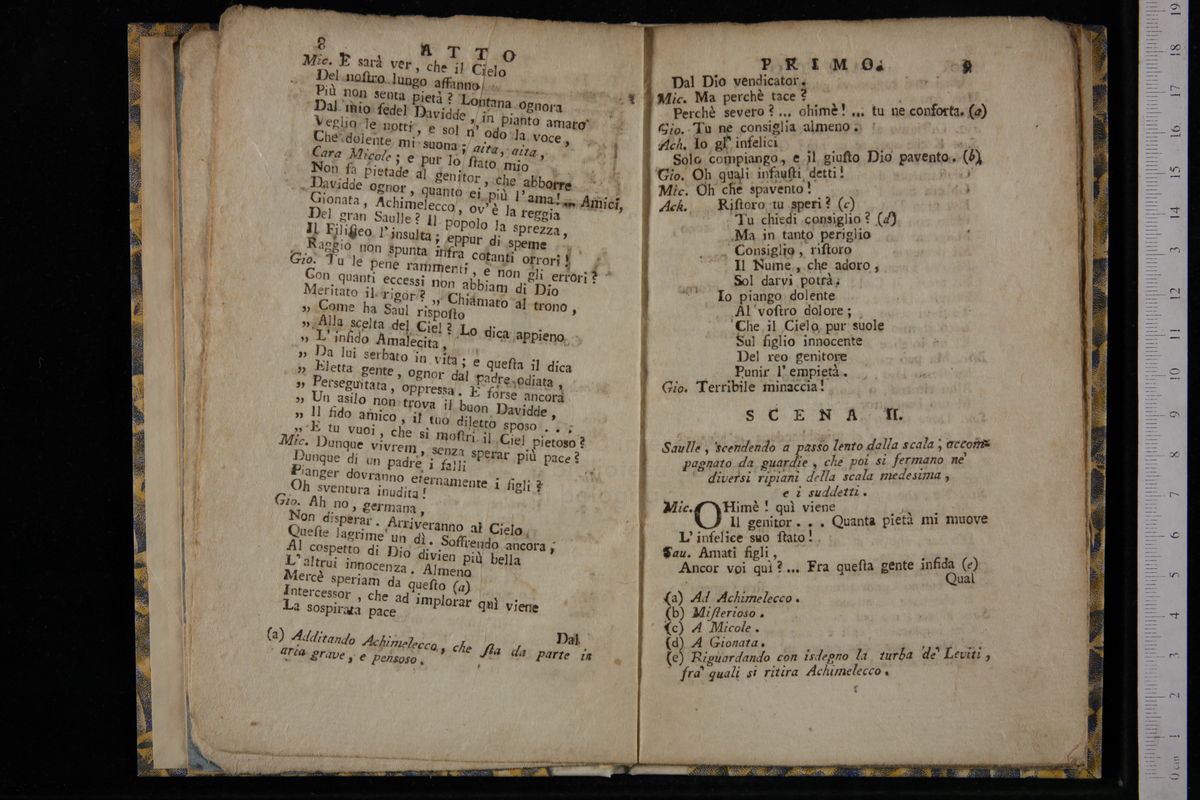 8 ATTO
Mic. E sarà ver, che il Cielo
Del noſtro lungo affanno
Più non senta pietà? Lontana ognora
Dal mio fedel Davidde, in pianto amaro
Veglio le notti, e sol n' odo la voce,
Che dolente mi suona; aita, aita,
Cara Micole; e pur lo ſtato mio
Non fa pietade al genitor, che abborre
Davidde ognor, quanto ei più l'ama!... Amici,
Gionata, Achimelecco, ov'è la reggia
Del gran Saulle? Il popolo la sprezza,
Il Filiſteo l'insulta; eppur di speme
Raggio non spunta infra cotanti orrori!
Gio. Tu le pene rammenti, e non gli errori?
Con quanti eccessi non abbiam di Dio
Meritato il rigor? „ Chiamato al trono,
„ Come ha Saul rispoſto
„ Alla scelta del Ciel? Lo dica appieno
„ L' infido Amalecita,
„ Da lui serbato in vita; e queſta il dica
„ Eletta gente, ognor dal padre odiata,
„ Perseguitata, oppressa. E forse ancora
„ Un asilo non trova il buon Davidde,
„ Il fido amico, il tuo diletto sposo . . .
„ E tu vuoi, che si moſtri il Ciel pietoso?
Mic. Dunque vivrem, senza sperar più pace?
Dunque di un padre i falli
Pianger dovranno eternamente i figli?
Oh sventura inudita!
Gio. Ah no, germana,
Non disperar. Arriveranno al Cielo
Queſte lagrime un dì. Soffrendo ancora,
Al cospetto di Dio divien più bella
L'altrui innocenza. Almeno
Mercè speriam da queſto (a)
Intercessor, che ad implorar quì viene
La sospirata pace
Dal
(a) Additando Achimelecco, che ſta da parte in
aria grave, e pensoso.
PRIMO. 9
Dal Dio vendicator.
Mic. Ma perchè tace?
Perchè severo?... ohimè!... tu ne conforta. (a)
Gio. Tu ne consiglia almeno.
Ach. Io gl' infelici
Solo compiango, e il giuſto Dio pavento. (b)
Gio. Oh quali infauſti detti!
Mic. Oh che spavento!
Ack. Riſtoro tu speri? (c)
Tu chiedi consiglio? (d)
Ma in tanto periglio
Consiglio, riſtoro
Il Nume, che adoro,
Sol darvi potrà.
Io piango dolente
Al voſtro dolore;
Che il Cielo pur suole
Sul figlio innocente
Del reo genitore
Punir l' empietà.
Gio. Terribile minaccia!
SCENA II.
Saulle, scendendo a passo lento dalla scala, accom-
pagnato da guardie, che poi si fermano ne'
diversi ripiani della scala medesima,
e i suddetti.
Mic. OHimè! quì viene
Il genitor . . . Quanta pietà mi muove
L' infelice suo ſtato!
Sau. Amati figli,
Ancor voi quì?... Fra queſta gente infida (e)
Qual
(a) Ad Achimelecco.
(b) Miſterioso.
(c) A Micole.
(d) A Gionata.
(e) Riguardando con isdegno la turba de' Leviti,
fra' quali si ritira Achimelecco.